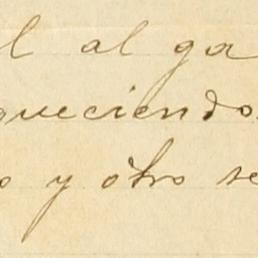 l al ga
queciendo
o y otro se